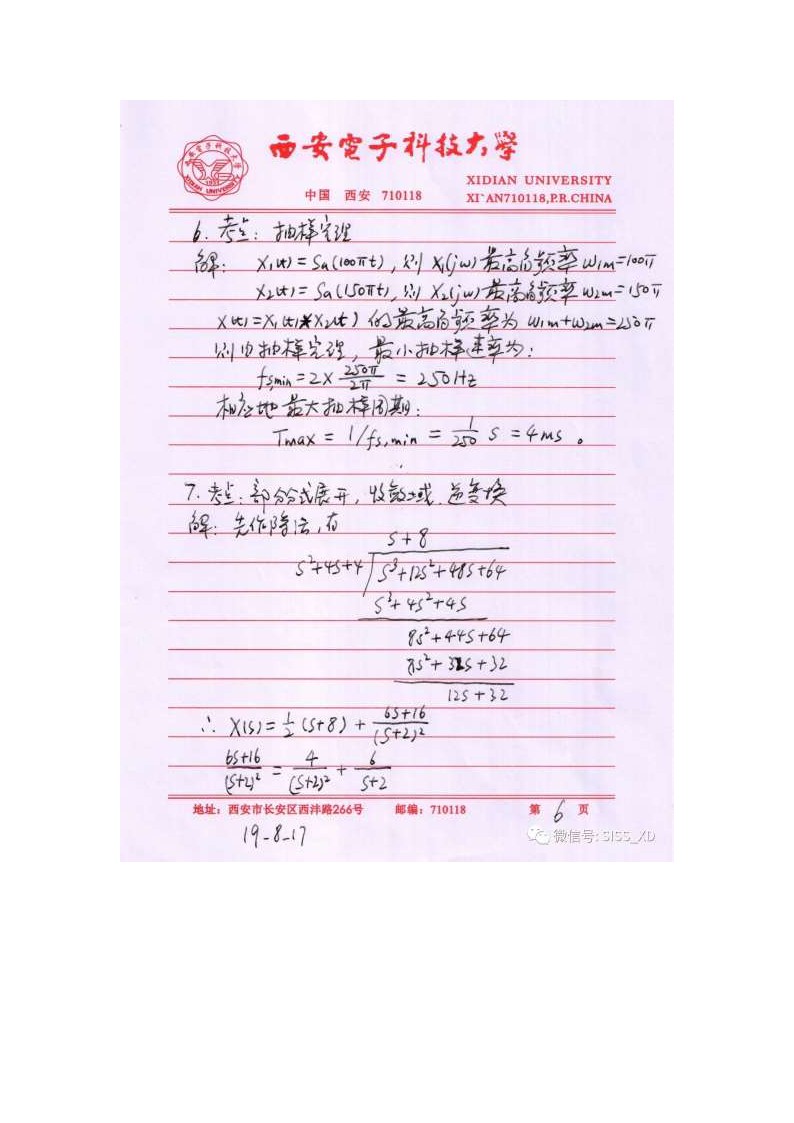 西安電子科技大學
XIDIAN UNIVERSITY
中国 西安 710118
XI`AN710118,P.R.CHINA
6. 考点: 抽样定理
解: X₁(t) = Sa(100πt), 则 X₁(jω) 最高角频率 ω1m=100π
X₂(t) = Sa(150πt), 则 X₂(jω) 最高角频率 ω2m=150π
X(t)=X₁(t)*X₂(t) 的最高角频率为 ω1m+ω2m=250π
则由抽样定理, 最小抽样速率为:
fs,min = 2× 250π/2π = 250Hz
相应地最大抽样周期:
Tmax = 1/fs,min = 1/250 S = 4ms 。
7. 考点: 部分分式展开, 收敛域, 逆变换
解: 先作除法, 有
S+8
S²+4S+4 S³+12S²+48S+64
S³+4S²+4S
8S²+44S+64
8S²+32S+32
12S+32
∴ X(S) = 1/2 (S+8) + 6S+16/(S+2)²
6S+16/(S+2)² = 4/(S+2)² + 6/S+2
地址: 西安市长安区西沣路266号 邮编: 710118 第 6 页
19-8-17
微信号: SISS_XD